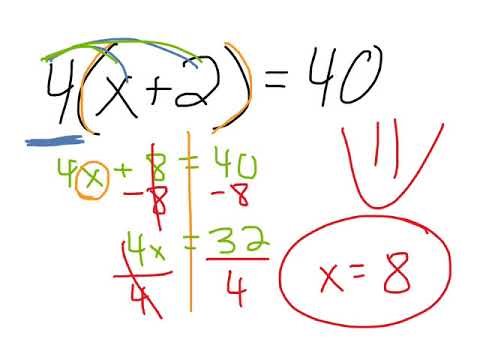 4(x+2)=40
4x + 8 = 40
-8 -8
4x = 32
4 4
x = 8